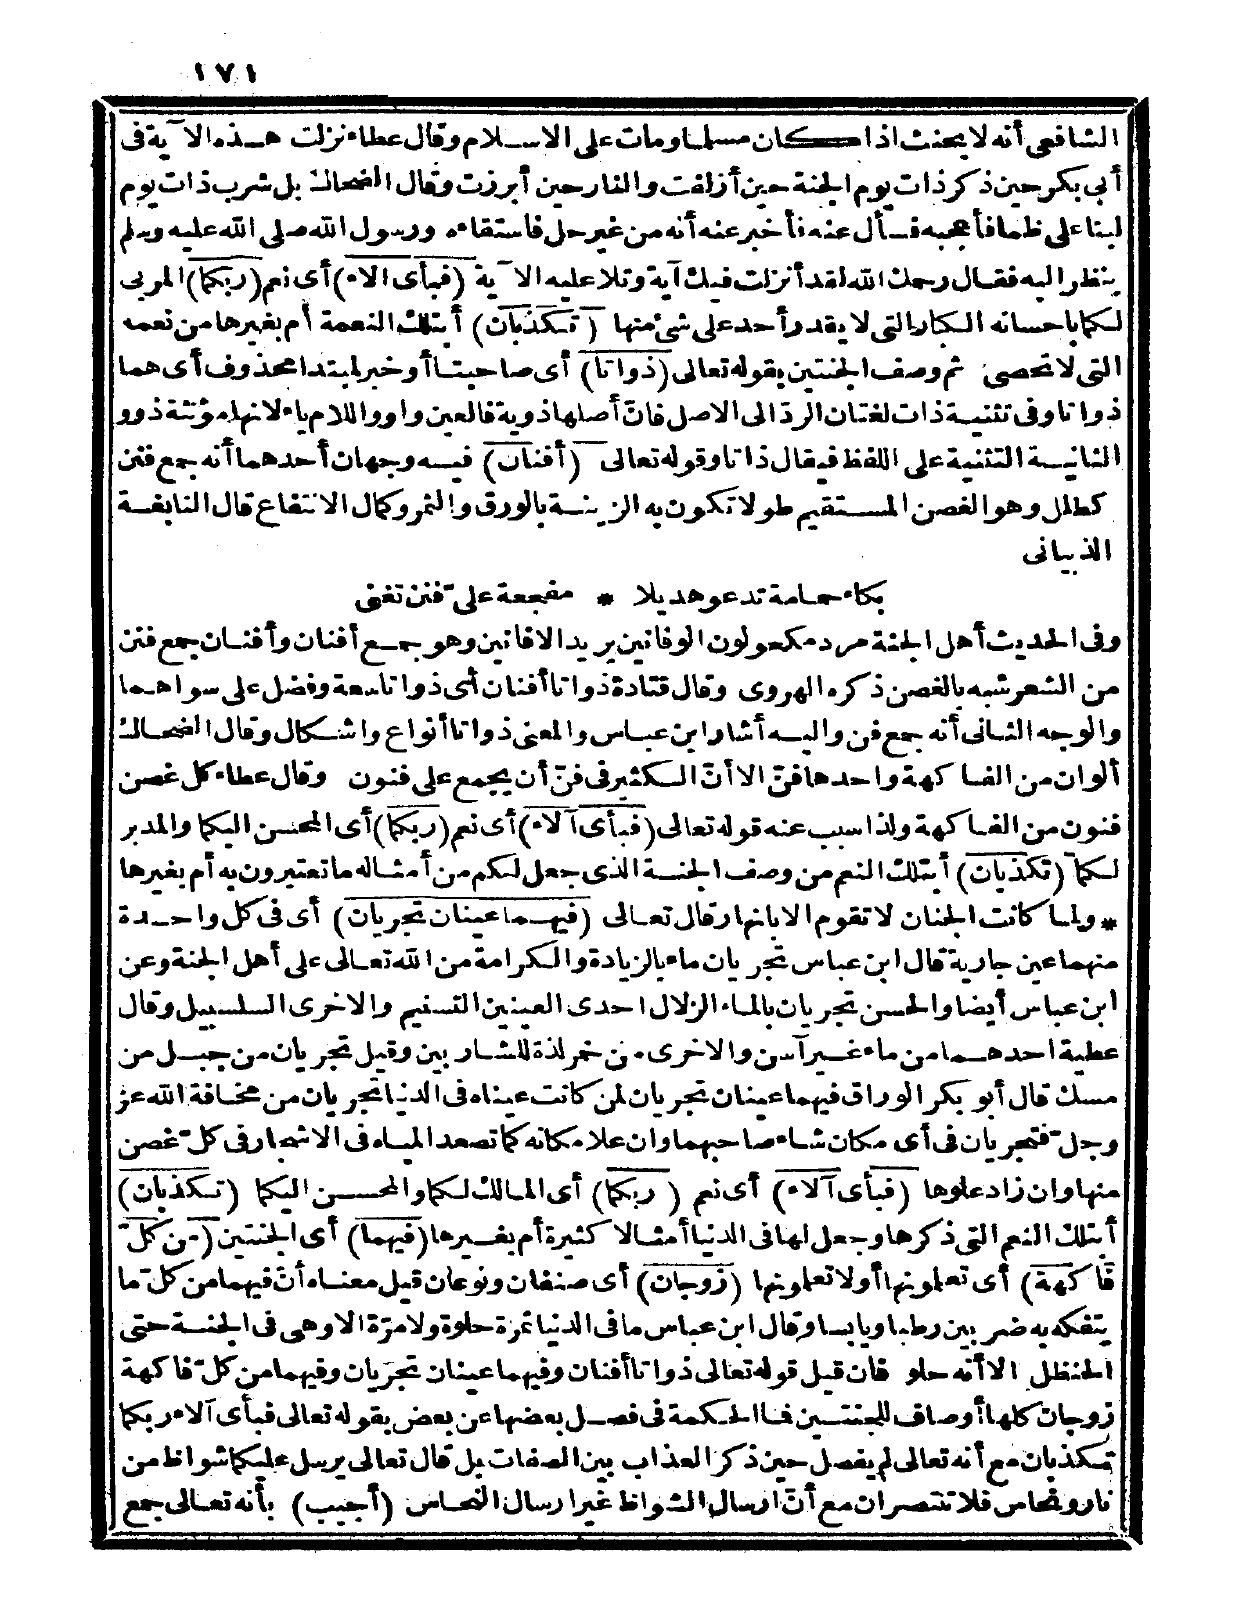 ١٧١
الشافعي أنه لا يحنث اذا كان مسلما ومات على الاسلام وقال عطاء نزلت هذه الآية في
أبي بكر حين ذكر ذات يوم الجنة حين أزلفت والنار حين أبرزت وقال الضحاك بل شرب ذات يوم
لبنا على ظما فأعجبه فسأل عنه فأخبر عنه أنه من غير حل فاستقاءه ورسول الله صلى الله عليه وسلم
ينظر اليه فقال رحمك الله لقد أنزلت فيك آية وتلا عليه الآية (فبأى الاء) أى نعم (ربكما) المربى
لكما باحسانه الكبار التى لا يقدر أحد على شئ منها (تكذبان) أبتلك النعمة أم بغيرها من نعمه
التى لا تحصى ثم وصف الجنتين بقوله تعالى (ذواتا) أى صاحبتا أو خبر لمبتدا محذوف أى هما
ذواتا وفى تثنية ذات لغتان الرد الى الاصل فان أصلها ذوية فالعين واو واللام ياء لانها مؤنثة ذوو
الثانية التثنية على اللفظ فيقال ذاتا وقوله تعالى (أفنان) فيه وجهان أحدهما أنه جمع فنن
كطلل وهو الغصن المستقيم طولا تكون به الزينة بالورق والثمر وكمال الانتفاع قال النابغة
الذبيانى
بكاء حمامة تدعو هديلا * مفجعة على فنن تغنى
وفى الحديث أهل الجنة مرد مكحولون الوفانين يريد الافانين وهو جمع أفنان وأفنان جمع فنن
من الشعر شبه بالغصن ذكره الهروى وقال قتادة ذواتا أفنان أى ذواتا سعة وفضل على سواهما
والوجه الثانى أنه جمع فن واليه أشار ابن عباس والمعنى ذواتا أنواع واشكال وقال الضحاك
ألوان من الفاكهة واحدها فنّ الا أنّ الكثير فى فنّ أن يجمع على فنون وقال عطاء كل غصن
فنون من الفاكهة ولذا سبب عنه قوله تعالى (فبأى آلاء) أى نعم (ربكما) أى المحسن اليكما والمدبر
لكما (تكذبان) أبتلك النعم من وصف الجنة الذى جعل لكم من أمثاله ما تعتبرون به أم بغيرها
* ولما كانت الجنان لا تقوم الا بانهار قال تعالى (فيهما عينان تجريان) أى فى كل واحدة
منهما عين جارية قال ابن عباس تجريان ماء بالزيادة والكرامة من الله تعالى على أهل الجنة وعن
ابن عباس أيضا والحسن تجريان بالماء الزلال احدى العينين التسنيم والاخرى السلسبيل وقال
عطية احدهما من ماء غير آسن والاخرى من خمر لذة للشاربين وقيل تجريان من جبل من
مسك قال أبو بكر الوراق فيهما عينان تجريان لمن كانت عيناه فى الدنيا تجريان من مخافة الله عز
وجلّ فتجريان فى أى مكان شاء صاحبهما وان علا مكانه كما تصعد المياه فى الاشجار فى كلّ غصن
منها وان زاد علوها (فبأى آلاء) أى نعم (ربكما) أى المالك لكما والمحسن اليكما (تكذبان)
أبتلك النعم التى ذكرها وجعل لها فى الدنيا أمثالا كثيرة أم بغيرها (فيهما) أى الجنتين (من كلّ
فاكهة) أى تعلمونها أو لا تعلمونها (زوجان) أى صنفان ونوعان قيل معناه أنّ فيهما من كلّ ما
يتفكه به ضربين رطبا ويابسا وقال ابن عباس ما فى الدنيا ثمرة حلوة ولا مرّة الا وهى فى الجنة حتى
الحنظل الا أنه حلو فان قيل قوله تعالى ذواتا أفنان وفيهما عينان تجريان وفيهما من كلّ فاكهة
زوجان كلها أوصاف للجنتين فما الحكمة فى فصل بعضها عن بعض بقوله تعالى فبأى آلاء ربكما
تكذبان مع أنه تعالى لم يفصل حين ذكر العذاب بين الصفات بل قال تعالى يرسل عليكما شواظ من
نار ونحاس فلا تنتصران مع أنّ ارسال الشواظ غير ارسال النحاس (أجيب) بأنه تعالى جمع